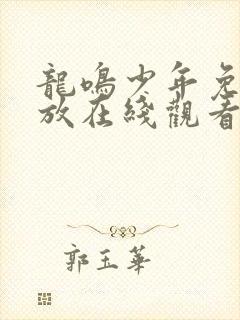 龍鳴少年免
放在綫觀看
郭玉華